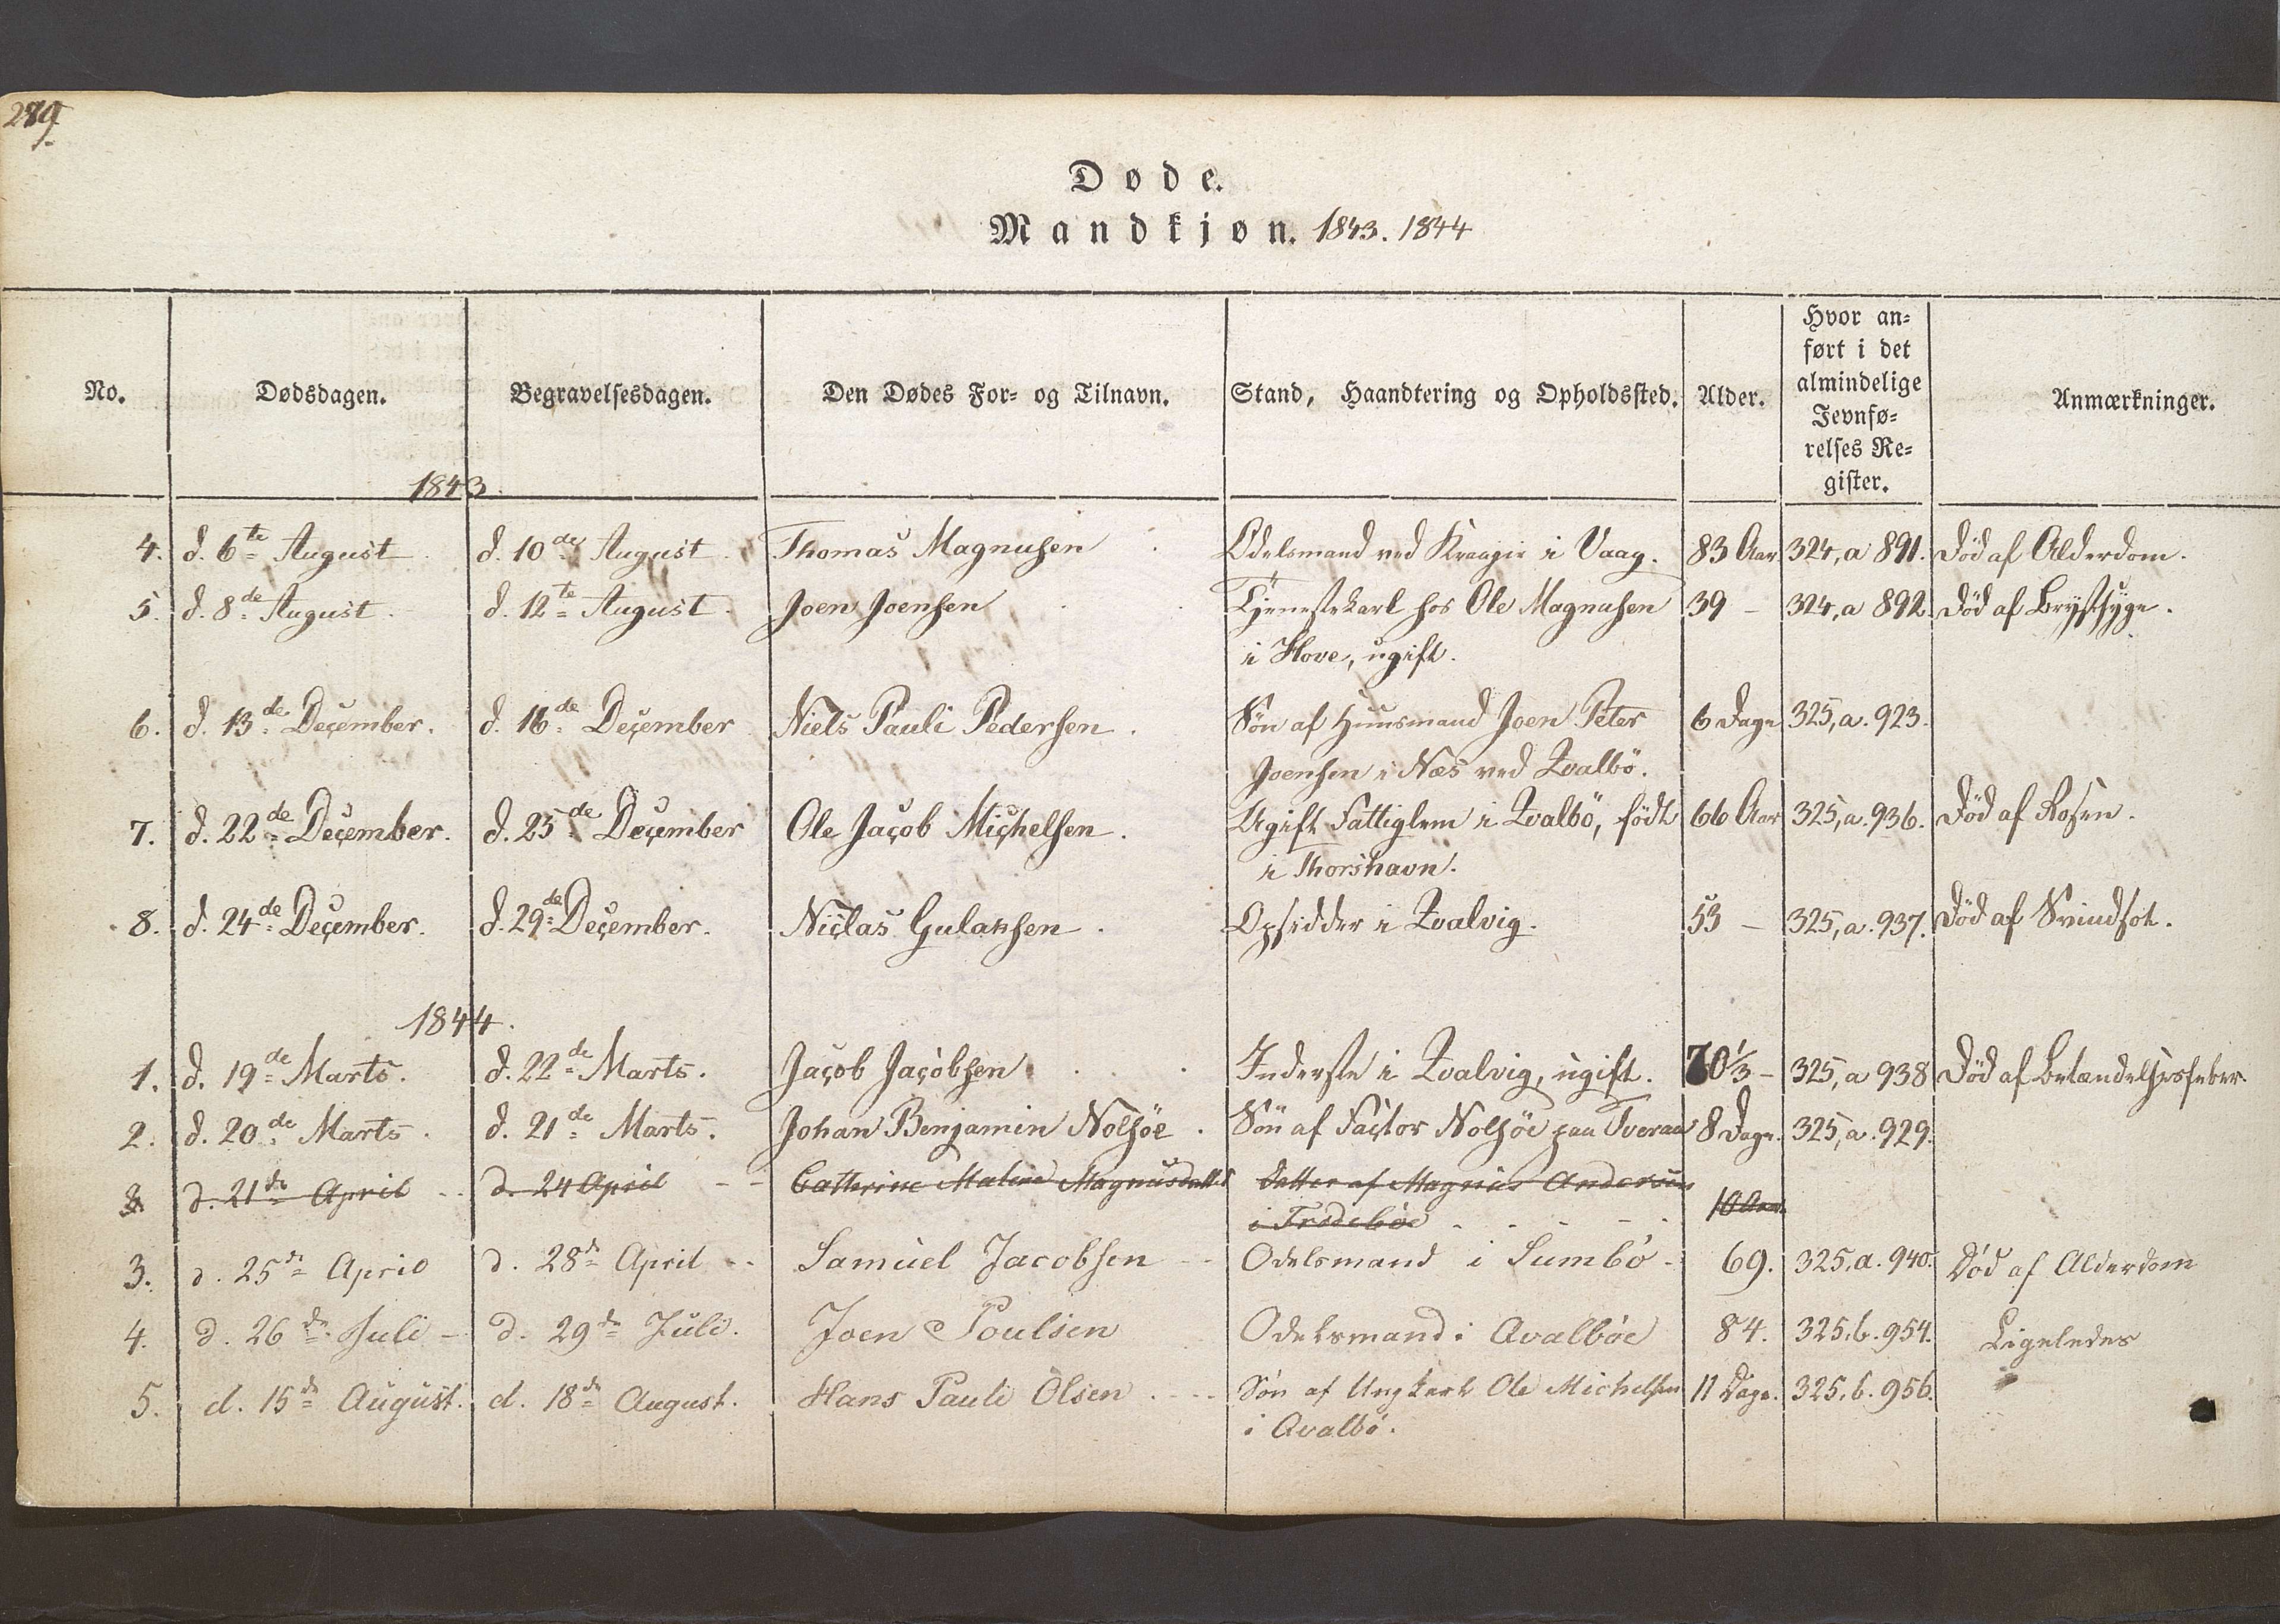 289
Døde.
Mandkjøn. 1843. 1844
No. Dødsdagen. Begravelsesdagen. Den Dødes For- og Tilnavn. Stand, Haandtering og Opholdssted. Alder. Hvor an-
ført i det
almindelige
Jevnfø-
relses Re-
gister. Anmærkninger.
1843.
4. d. 6te August d. 10de August Thomas Magnusen Odelsmand ved Kraagie i Vaag. 83 Aar 324, a 891. Død af Alderdom.
5. d. 8de August d. 12te August Joen Joensen Tjenestekarl hos Ole Magnusen 39 – 324, a 892. Død af Brystsyge.
i Hove, ugift.
6. d. 13de December. d. 16de December Niels Pauli Pedersen. Søn af Huusmand Joen Peter 6 Dage 325, a. 923.
Joensen i Næs ved Qvalbö.
7. d. 22de December. d. 25de December Ole Jacob Michelsen. Ugift Fattiglem i Qvalbö, födt 66 Aar 325, a. 936. Død af Rosen.
i Thorshavn.
8. d. 24de December. d. 29de December. Niclas Gulaksen. Opsidder i Qvalvig. 53 – 325, a. 937. Død af Svindsot.
1844.
1. d. 19de Marts. d. 22de Marts. Jacob Jacobsen Inderste i Qvalvig, ugift. 70 1/3 – 325, a 938 Död af Betændelsesfeber.
2. d. 20de Marts. d. 21de Marts. Johan Benjamin Nolsöe. Sön af Factor Nolsöe paa Tveraae 8 Dage. 325, a. 929.
3. d. 21de April d. 24 April Cathrine Malene Magnusdatter Datter af Magnus Andersen
i Frodeböe 10 Aar.
3. d. 25de April d. 28de April Samuel Jacobsen Odelsmand i Sumbö 69. 325. a. 940. Död af Alderdom
4. d. 26de Juli – d. 29de Juli. Joen Poulsen Odelsmand i Qvalböe 84. 325. b. 954. Ligeledes
5. d. 15de August. d. 18de August. Hans Pauli Olsen Sön af Ungkarl Ole Michelsen 11 Dage. 325. b. 956.
i Qvalbö.